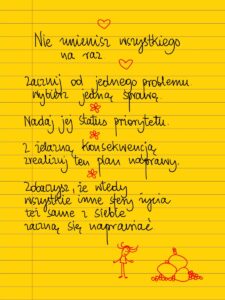 Nie zmienisz wszystkiego
na raz.
Zacznij od jednego problemu
wybierz jedną sprawę.
Nadaj jej status priorytetu.
Z żelazną konsekwencją
zrealizuj ten plan naprawy.
Zobaczysz, że wtedy
wszystkie inne sfery życia
też same z siebie
zaczną się naprawiać